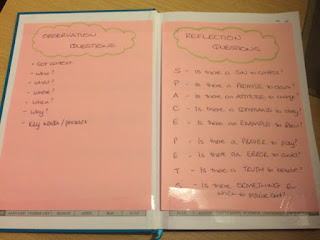 OBSERVATION
QUESTIONS
- Get context
- who?
- what?
- where?
- when?
- Why?
- Key words/phrases
REFLECTION
QUESTIONS
S - Is there a SIN to confess?
P - Is there a PROMISE to claim?
A - Is there an ATTITUDE to change?
C - Is there a COMMAND to obey?
E - Is there an EXAMPLE to follow?
P - Is there a PRAYER to pray?
E - Is there an ERROR to avoid?
T - Is there a TRUTH to believe?
S - Is there SOMETHING for
which to praise God?